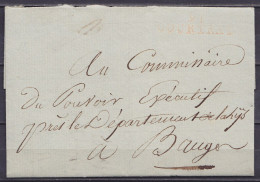 Au Commissaire
du Pouvoir Exécutif
près le Département de la Lys
a Bruges